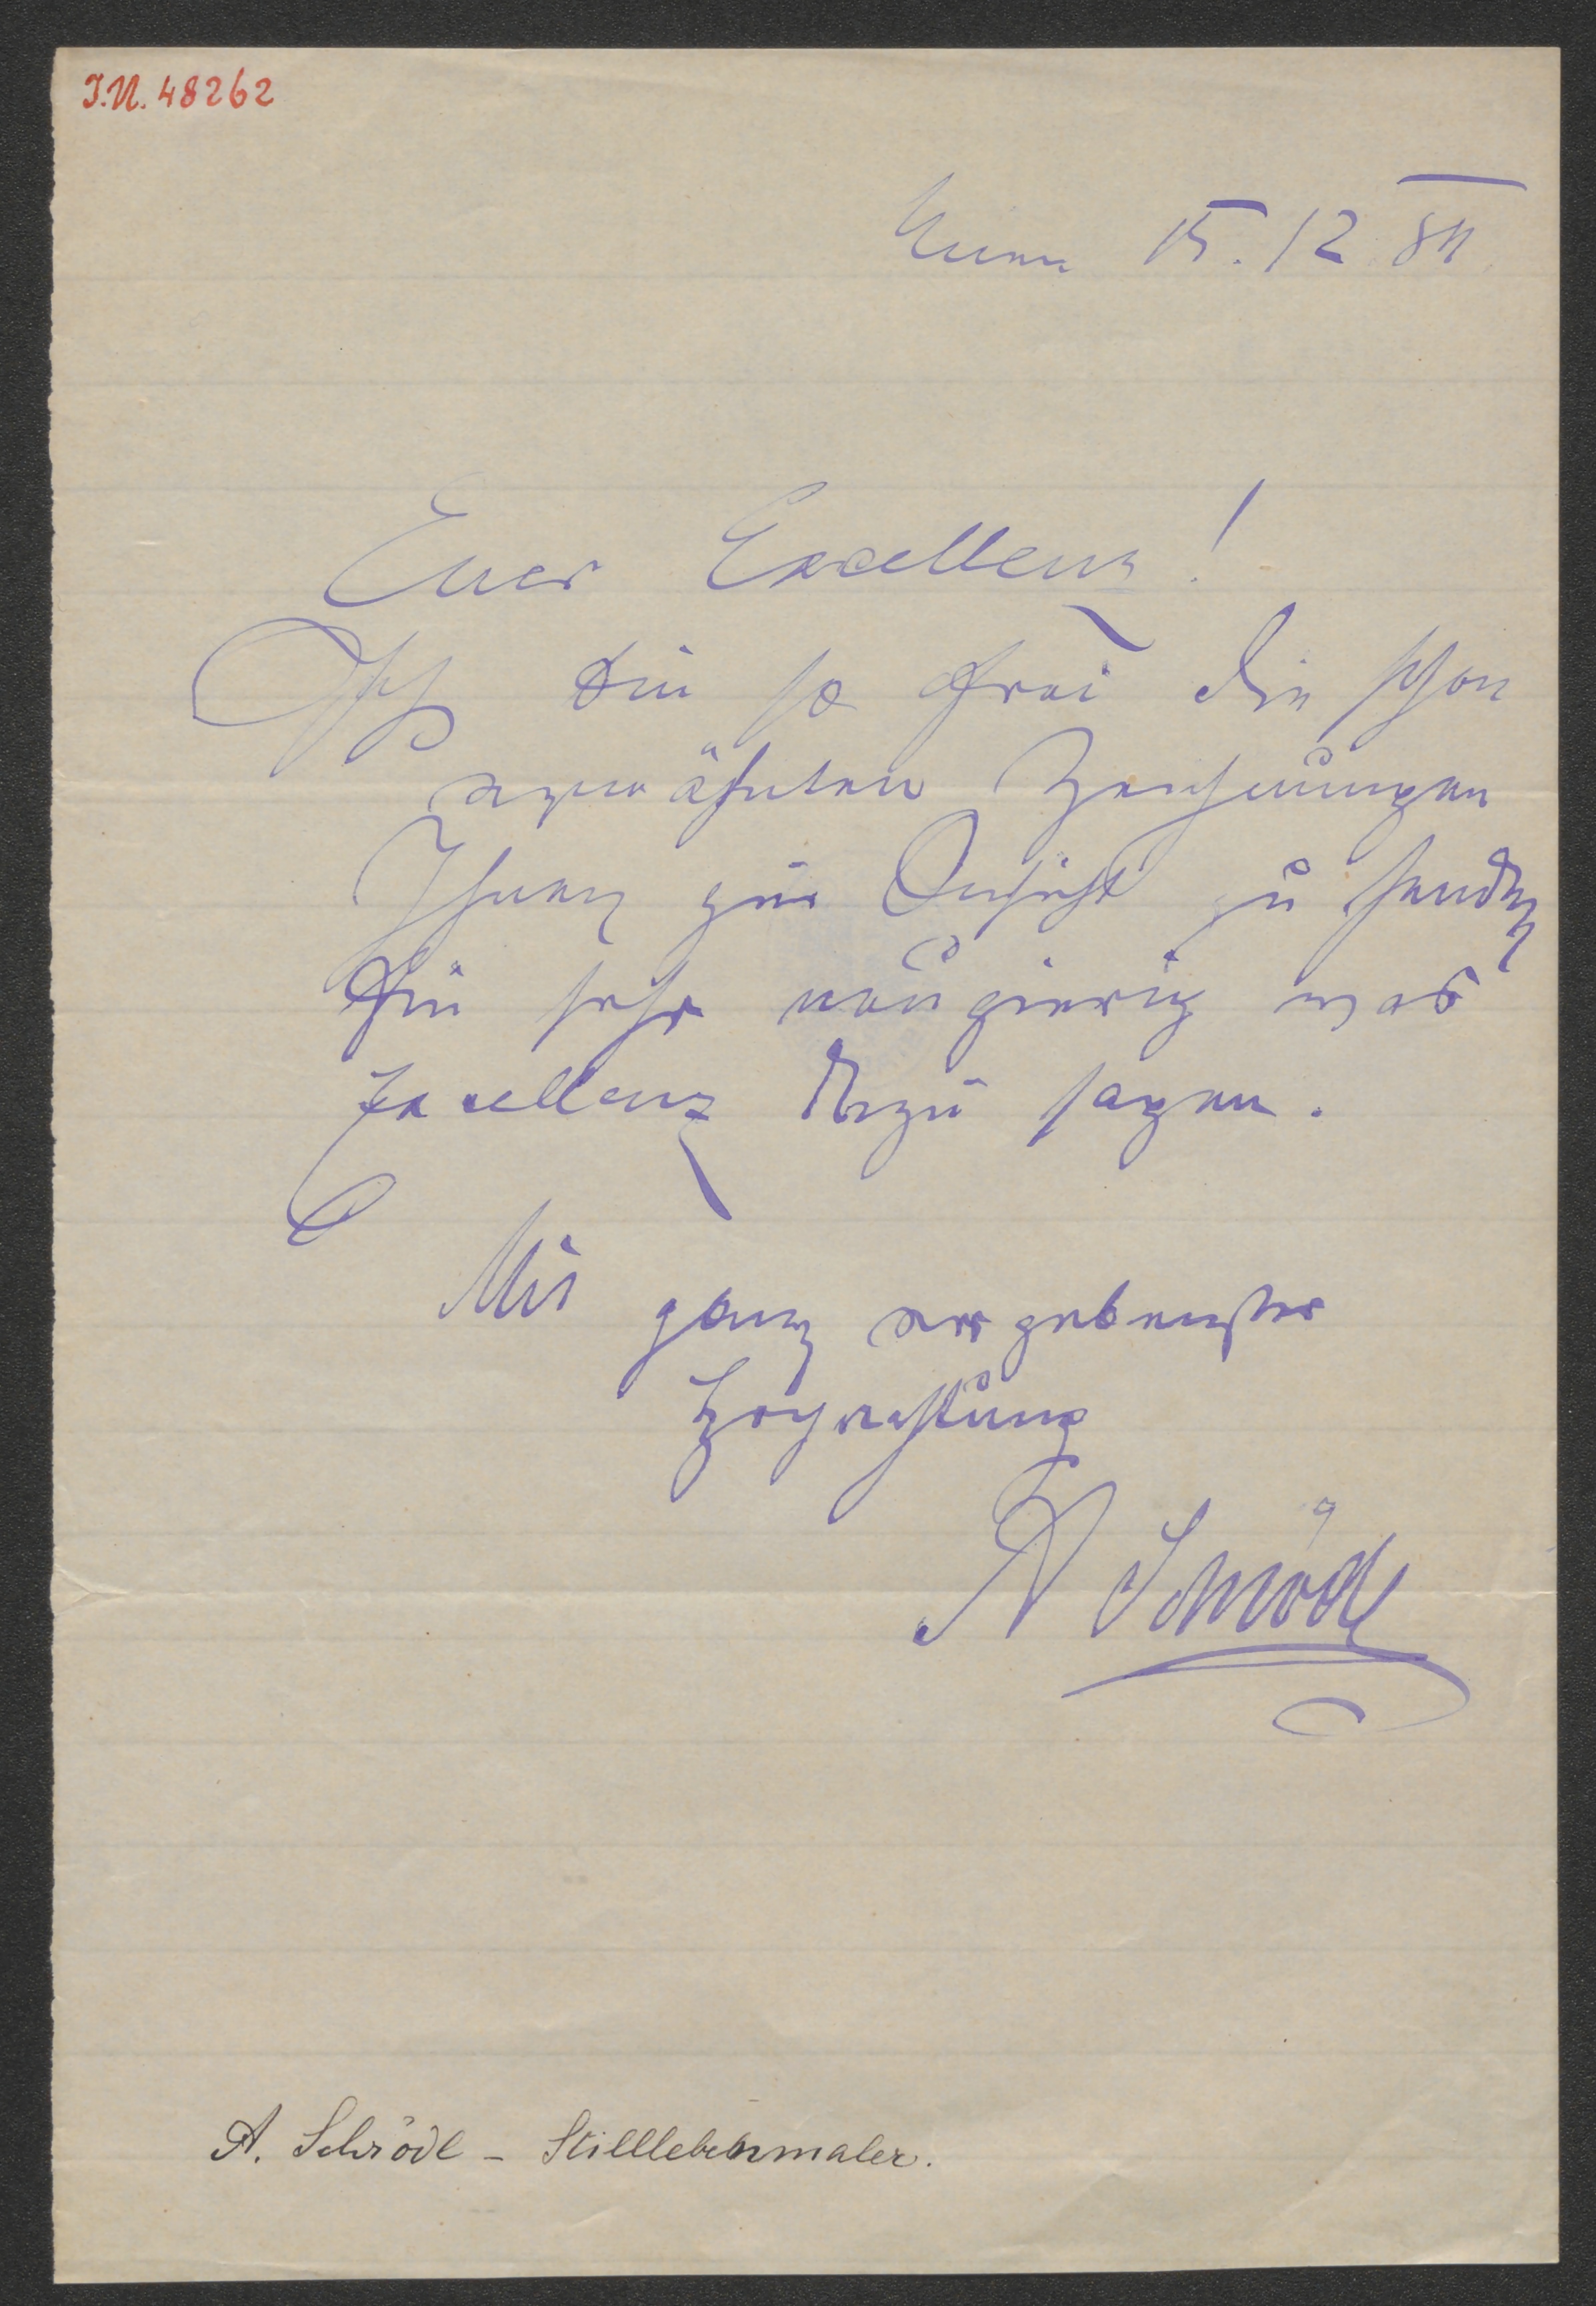 I.N. 48262
Wien 15. 12
Euer Excellenz!
Ich bin so frei die schon
erwähnten Zeichnungen
Ihnen zur Ansicht zu senden
bin sehr neugierig was
Excellenz dazu sagen.
Mit ganz ergebenster
Hochachtung
A Schrödl
A. Schrödl – Stilllebenmaler.